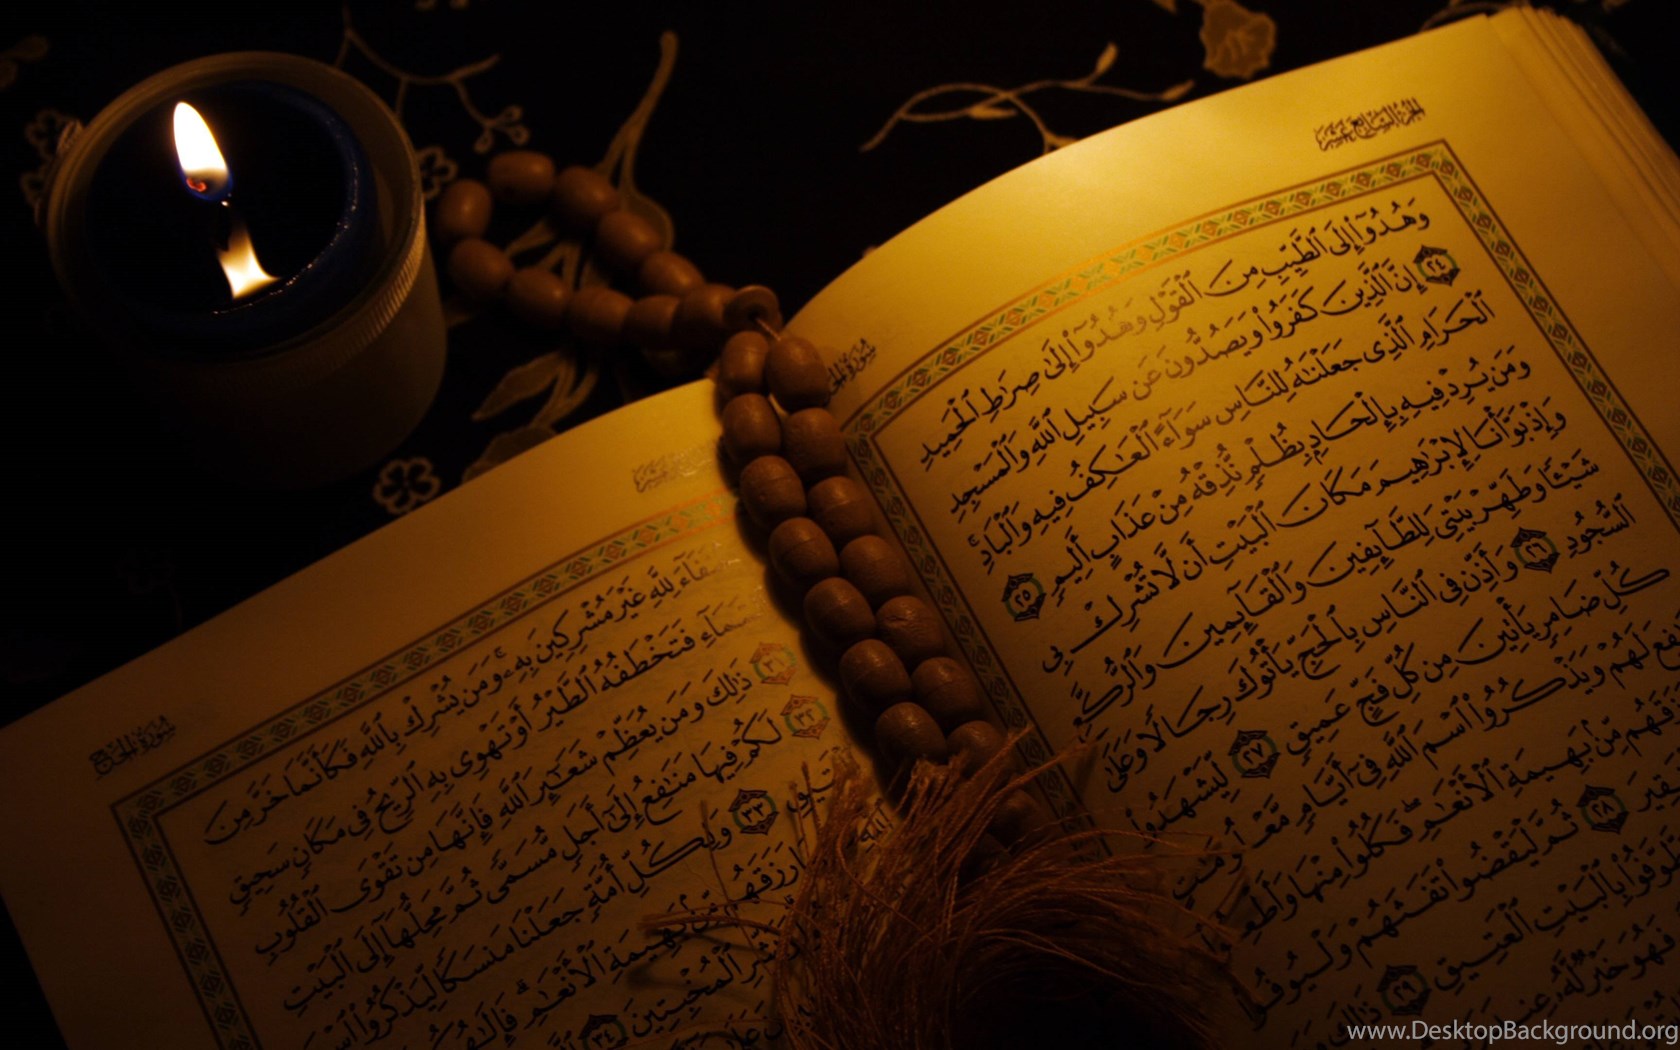 الجزء السابع عشر
سورة الحج
وَهُدُوٓا۟ إِلَى ٱلطَّيِّبِ مِنَ ٱلْقَوْلِ وَهُدُوٓا۟ إِلَىٰ صِرَٰطِ ٱلْحَمِيدِ
٢٤ إِنَّ ٱلَّذِينَ كَفَرُوا۟ وَيَصُدُّونَ عَن سَبِيلِ ٱللَّهِ وَٱلْمَسْجِدِ
ٱلْحَرَامِ ٱلَّذِى جَعَلْنَٰهُ لِلنَّاسِ سَوَآءً ٱلْعَٰكِفُ فِيهِ وَٱلْبَادِ ۚ
وَمَن يُرِدْ فِيهِ بِإِلْحَادٍۭ بِظُلْمٍ نُّذِقْهُ مِنْ عَذَابٍ أَلِيمٍ ٢٥
وَإِذْ بَوَّأْنَا لِإِبْرَٰهِيمَ مَكَانَ ٱلْبَيْتِ أَن لَّا تُشْرِكْ بِى
شَيْـًٔا وَطَهِّرْ بَيْتِىَ لِلطَّآئِفِينَ وَٱلْقَآئِمِينَ وَٱلرُّكَّعِ
ٱلسُّجُودِ ٢٦ وَأَذِّن فِى ٱلنَّاسِ بِٱلْحَجِّ يَأْتُوكَ رِجَالًا وَعَلَىٰ
كُلِّ ضَامِرٍ يَأْتِينَ مِن كُلِّ فَجٍّ عَمِيقٍ ٢٧ لِّيَشْهَدُوا۟
لَهُمْ وَيَذْكُرُوا۟ ٱسْمَ ٱللَّهِ فِىٓ أَيَّامٍ مَّعْلُومَٰتٍ
مِّنۢ بَهِيمَةِ ٱلْأَنْعَٰمِ ۖ فَكُلُوا۟ مِنْهَا وَأَطْعِمُوا۟
٢٨ ثُمَّ لْيَقْضُوا۟ تَفَثَهُمْ وَلْيُوفُوا۟
بِٱلْبَيْتِ ٱلْعَتِيقِ ٢٩ ذَٰلِكَ
فَهُوَ خَيْرٌ لَّهُۥ عِندَ
سورة الحج
لِلَّهِ غَيْرَ مُشْرِكِينَ بِهِۦ ۚ وَمَن يُشْرِكْ بِٱللَّهِ فَكَأَنَّمَا خَرَّ مِنَ
ٱلسَّمَآءِ فَتَخْطَفُهُ ٱلطَّيْرُ أَوْ تَهْوِى بِهِ ٱلرِّيحُ فِى مَكَانٍ سَحِيقٍ
٣١ ذَٰلِكَ وَمَن يُعَظِّمْ شَعَٰٓئِرَ ٱللَّهِ فَإِنَّهَا مِن تَقْوَى ٱلْقُلُوبِ
٣٢ لَكُمْ فِيهَا مَنَٰفِعُ إِلَىٰٓ أَجَلٍ مُّسَمًّى ثُمَّ مَحِلُّهَآ إِلَى ٱلْبَيْتِ
٣٣ وَلِكُلِّ أُمَّةٍ جَعَلْنَا مَنسَكًا لِّيَذْكُرُوا۟ ٱسْمَ
ٱللَّهِ رَزَقَهُم مِّنۢ بَهِيمَةِ ٱلْأَنْعَٰمِ ۗ فَإِلَٰهُكُمْ
ٱلْمُخْبِتِينَ ٣٤
www.DesktopBackground.org